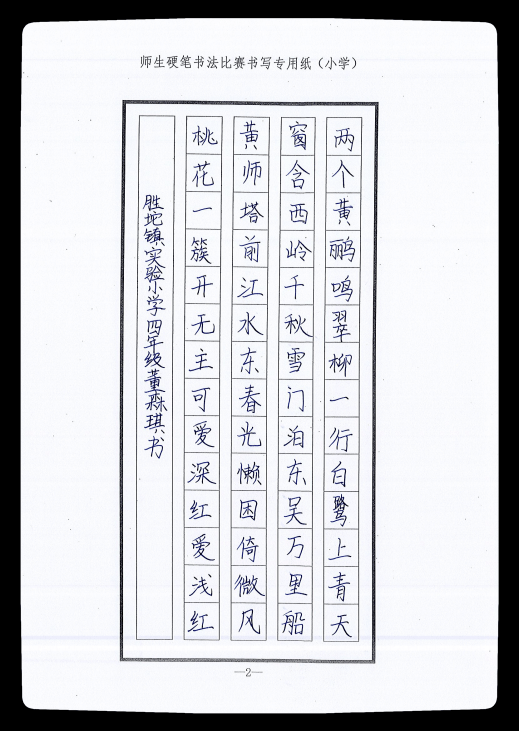 师生硬笔书法比赛书写专用纸（小学）
两个黄鹂鸣翠柳一行白鹭上青天
窗含西岭千秋雪门泊东吴万里船
黄师塔前江水东春光懒困倚微风
桃花一簇开无主可爱深红爱浅红
胜坨镇实验小学四年级董淼琪书
—2—